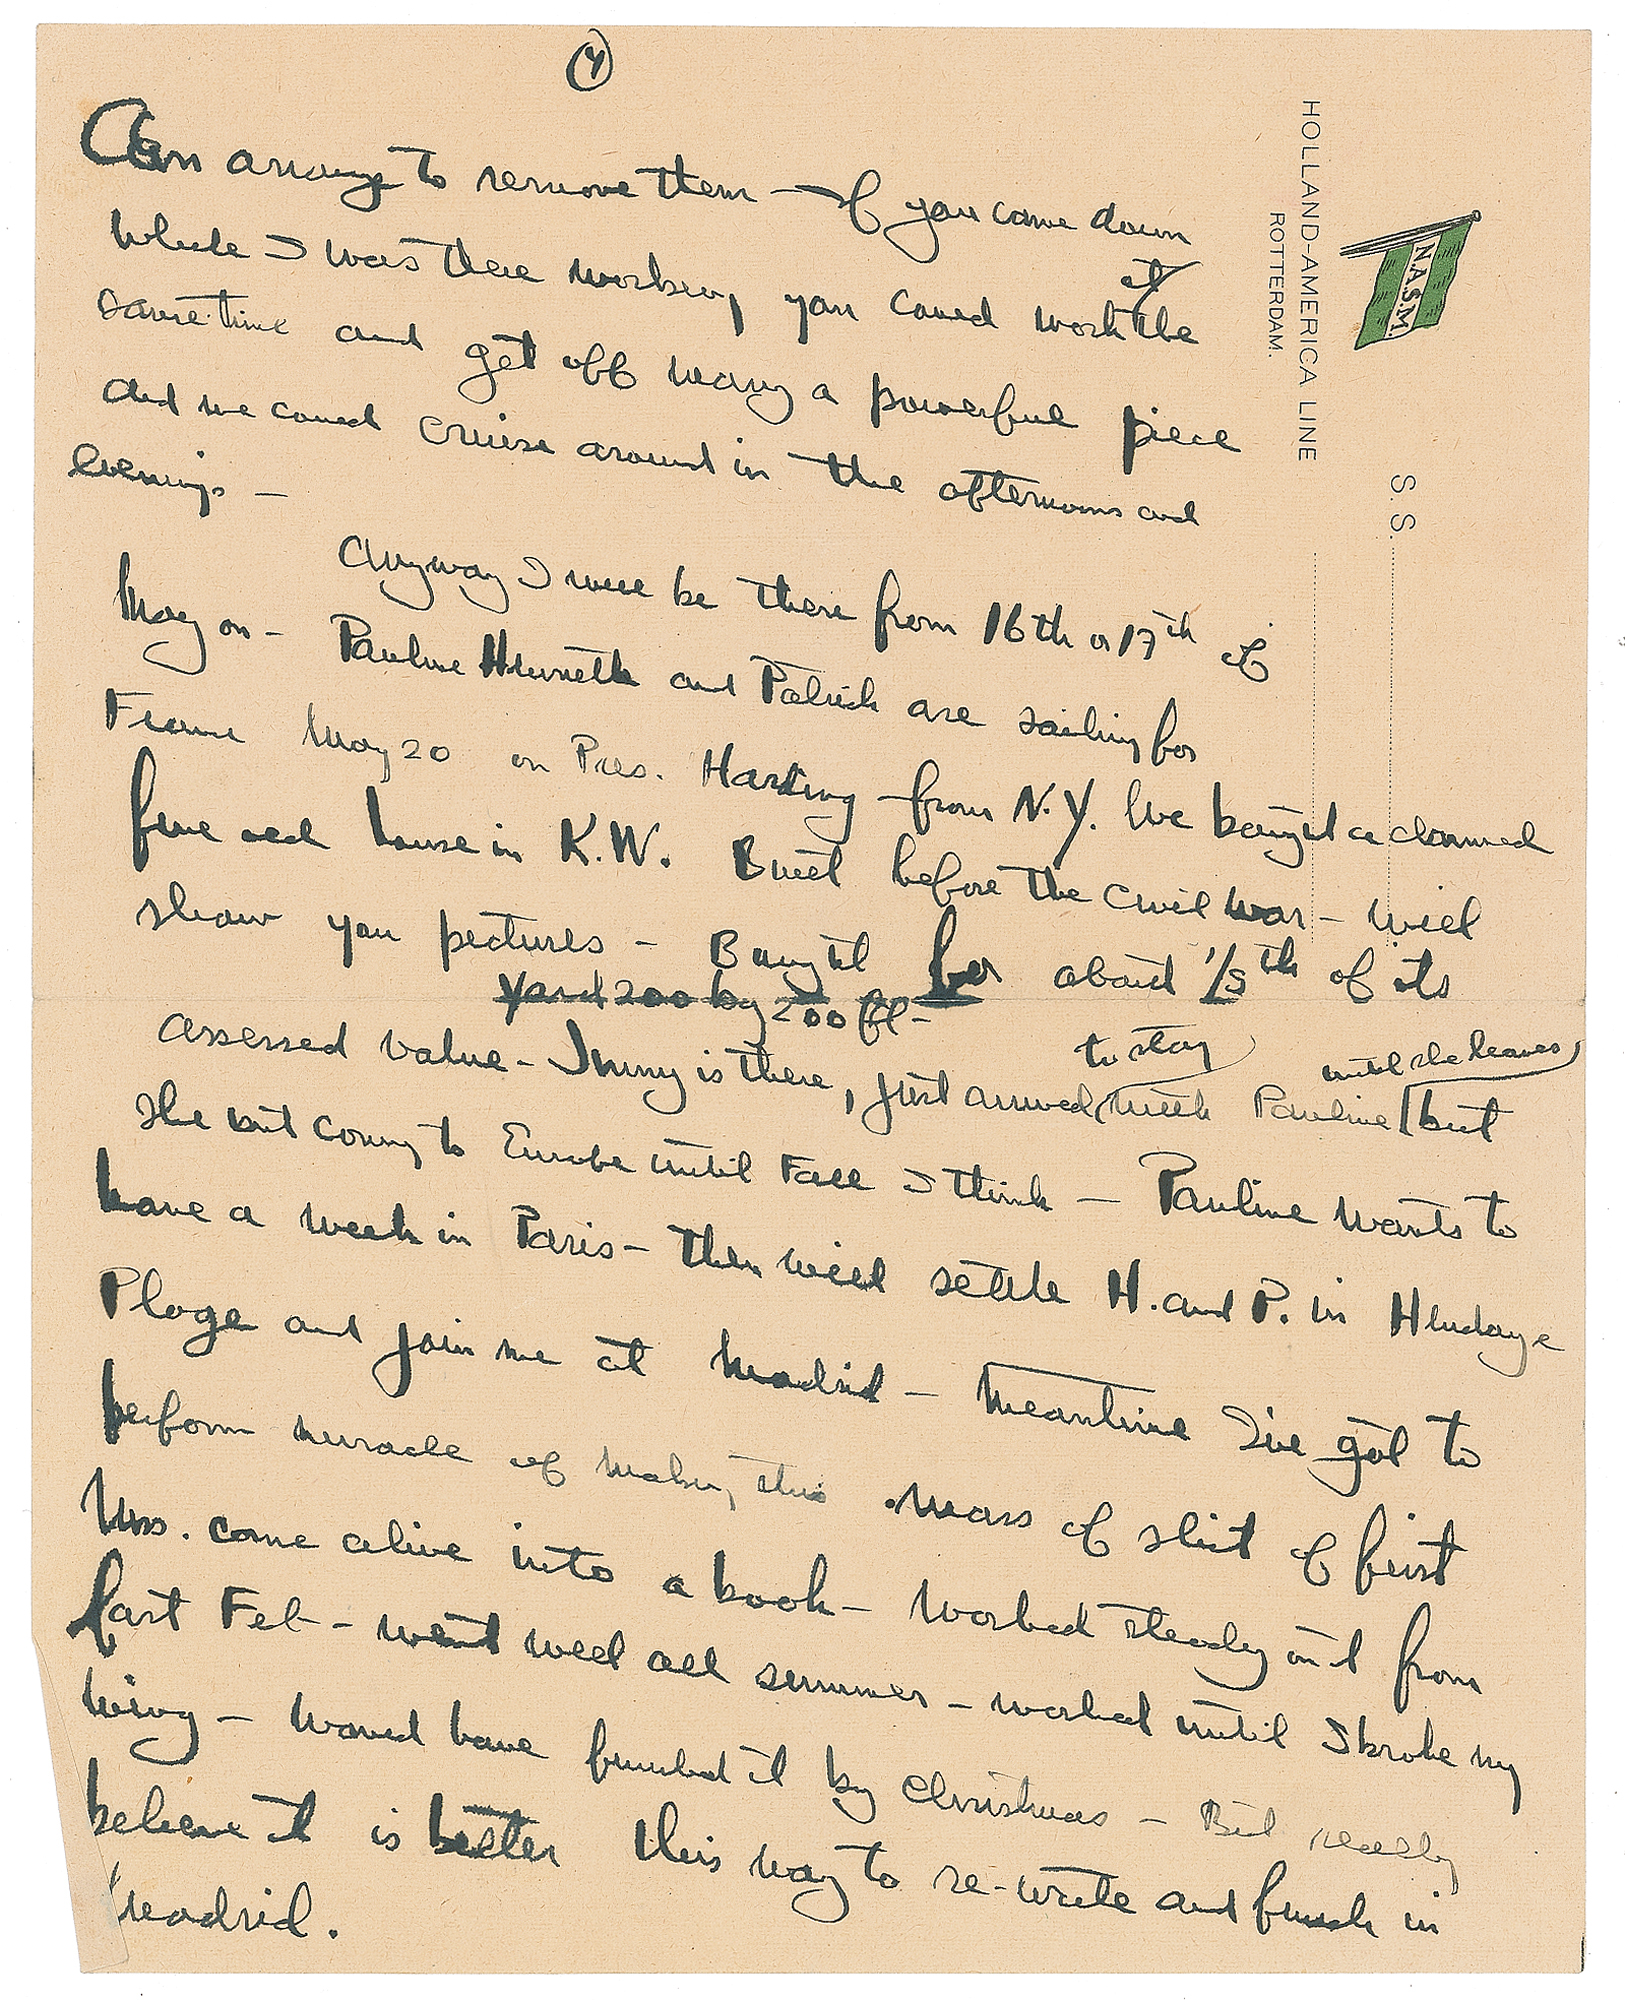 4
Can arrange to remove them — If you came down
while I was there working you could work at the
same time and get off many a powerful piece
and we could cruise around in the afternoons and
evenings —
Anyway I will be there from 16th or 17th of
May on — Pauline Henriette and Patrick are sailing for
France May 20 on Pres. Harding from N.Y. We bought a damned
fine old house in K.W. Built before the civil war — will
show you pictures — Bought for about 1/5th of its
yard 200 by 200 ft —
assessed value — Jinny is there, just arrived to stay with Pauline until she leaves, but
she not coming to Europe until Fall I think — Pauline wants to
have a week in Paris — then will settle H. and P. in Hendaye
Plage and join me at Madrid — Meantime I've got to
perform miracle of making this mass of shit of first
Mss. come alive into a book — Worked steady on it from
last Feb — went well all summer — worked until I broke my
wing — would have finished it by Christmas — But really
believe it is better this way to re-write and finish in
Madrid.
HOLLAND-AMERICA LINE
ROTTERDAM.
N.A.S.M.
S.S.